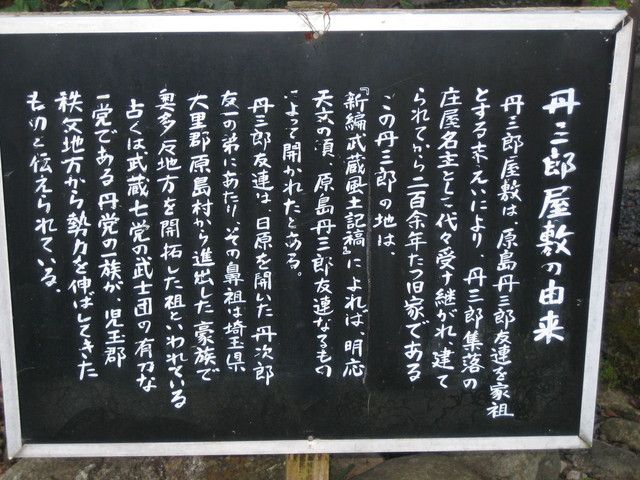 丹三郎屋敷の由来
丹三郎屋敷は、原島丹三郎友連を家祖
とする末えいにより、丹三郎集落の
庄屋名主として代々受け継がれ、建て
られてから二百余年たつ旧家である
この丹三郎の地は、
『新編武蔵風土記稿』によれば、明応
天文の頃、原島丹三郎友連なるもの
によって開かれたとある。
丹三郎友連は、日原を開いた丹次郎
友一の弟にあたり、その鼻祖は埼玉県
大里郡原島村から進出した豪族で
奥多広地方を開拓した祖といわれている
古くは武蔵七党の武士団の有力な
一党である丹党の一族が、児玉郡
秩父地方から勢力を伸ばしてきた
ものと伝えられている。